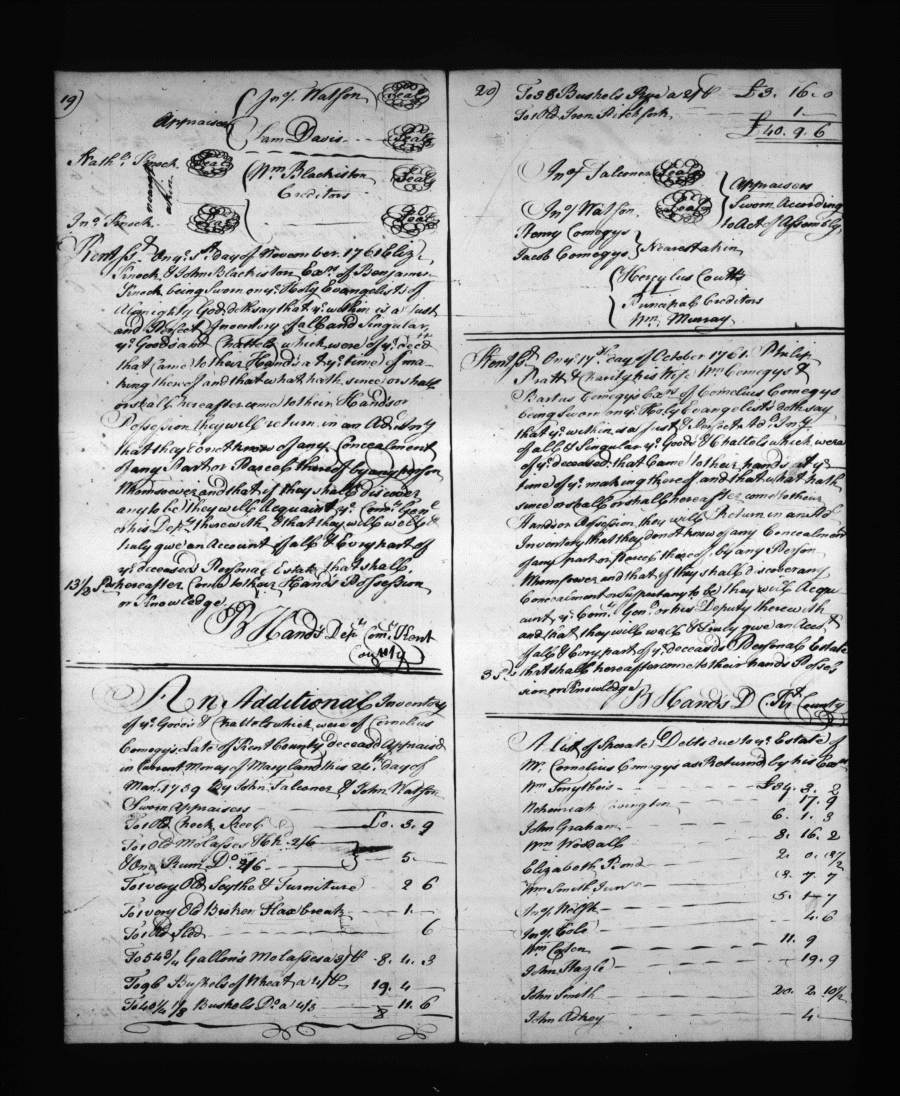 19)
Jno. Watson Seal
Appraisers
Sam Davis Seal
Nathl. Knock Seal
Wm Blackiston Seal
Creditors
nearest akin
Jno Knock Seal
Kent ss. On ye 5th day of November 1761 Eliz.
Knock & John Blackiston Exrs. of Benjamin
Knock being Sworn on ye Holy Evangelists of
Almighty God doth say that ye within is a just
and Perfect Inventory of all and Singular
ye Goods and Chattels which were of ye deced
that came to their Hands at ye time of ma-
king thereof and that what hath since or shall
or shall hereafter come to their Hands or
Possession they will return in an Ad Inty
that they do not know of any Concealment
of any Part or Parcel thereof by any person
Whomsoever and that if they shall discover
any to be they will Acquaint ye Comy Genl
or his Depy therewith & that they will well &
truly give an Account of all & Evry part of
ye deceased Personal Estate that shall
13 1/2 Sds hereafter Come to their Hands Possession
or Knowledge
B Hands Depy Comy Kent
County
An Additional Inventory
of ye Goods & Chattels which were of Cornelius
Comegys Late of Kent County deceasd Appraisd
in Current Money of Maryland this 24th day of
Mar. 1759 By John Falconer & John Watson
Sworn Appraisers
To 1 Old Check Reel £0. 3. 9
To 1 Old Molasses Hhd 2/6
& One Rum Do. 2/6 5. -
To 1 very Old Scythe & Furniture 2 6
To 1 very Old Broken Flax break 1. -
To 1 Old Sled 6
To 54 3/4 Gallons Molasses a 3/ 8. 4. 3
To 96 Bushels of Wheat a 4/ 19. 4 -
To 40 1/4 1/8 Bushels Do a 4/3 8 11. 6
20)
To 38 Bushels Rye a 2/ £3. 16. 0
To 1 Old Iron Pitch fork 1
£40. 9. 6
Jno. Falconer Seal
Appraisers
Jno. Watson Seal
Sworn According
to Act of Assembly
Henry Comegys
Jacob Comegys Nearest akin
Hercules Coutts
Principal Creditors
Wm. Murray
Kent ss. On ye 17th day of October 1761. Philip
Pratt & Charity his Wife Wm Comegys &
Bartus Comegys Exrs of Cornelius Comegys
being Sworn on ye Holy Evangelists doth say
that ye within is a just & Perfect Add Inty
of all & Singular ye Goods & Chattels which were
of ye deceased that Came to their hands at ye
time of ye making thereof and that what hath
since or shall or shall hereafter come to their
Hands or Possession they will Return in an Ad
Inventory that they do not know of any Concealment
of any part or Parcel thereof by any Person
Whomsoever and that if they shall discover any
Concealment or suspect any to be they will Acqu-
aint ye Comy Genl or his Deputy therewith
and that they will well & Truly give an Acct
of all & Evry part of ye deceasds Personal Estate
3 Sds that shall hereafter come to their hands Posses-
sion or Knowledge
B Hands D Kt County
A List of Sperate Debts due to ye Estate of
Mr. Cornelius Comegys as Returnd by his Exrs
Wm Smytheis £34. 3. 2
Nehemiah Covington 1 17. 9
John Graham 6. 1. 3
Wm Woodall 8. 16. 2
Elizabeth Bond 2. 0. 1 1/2
Wm Smith Junr 18. 7. 7
Jno. Wolfk 5. 1 - 7
Jno. Cole 4. 6
Wm Coson 11. 9
John Hazle 19. 9
John Smith 20. 2. 10 1/2
John Adkey 4